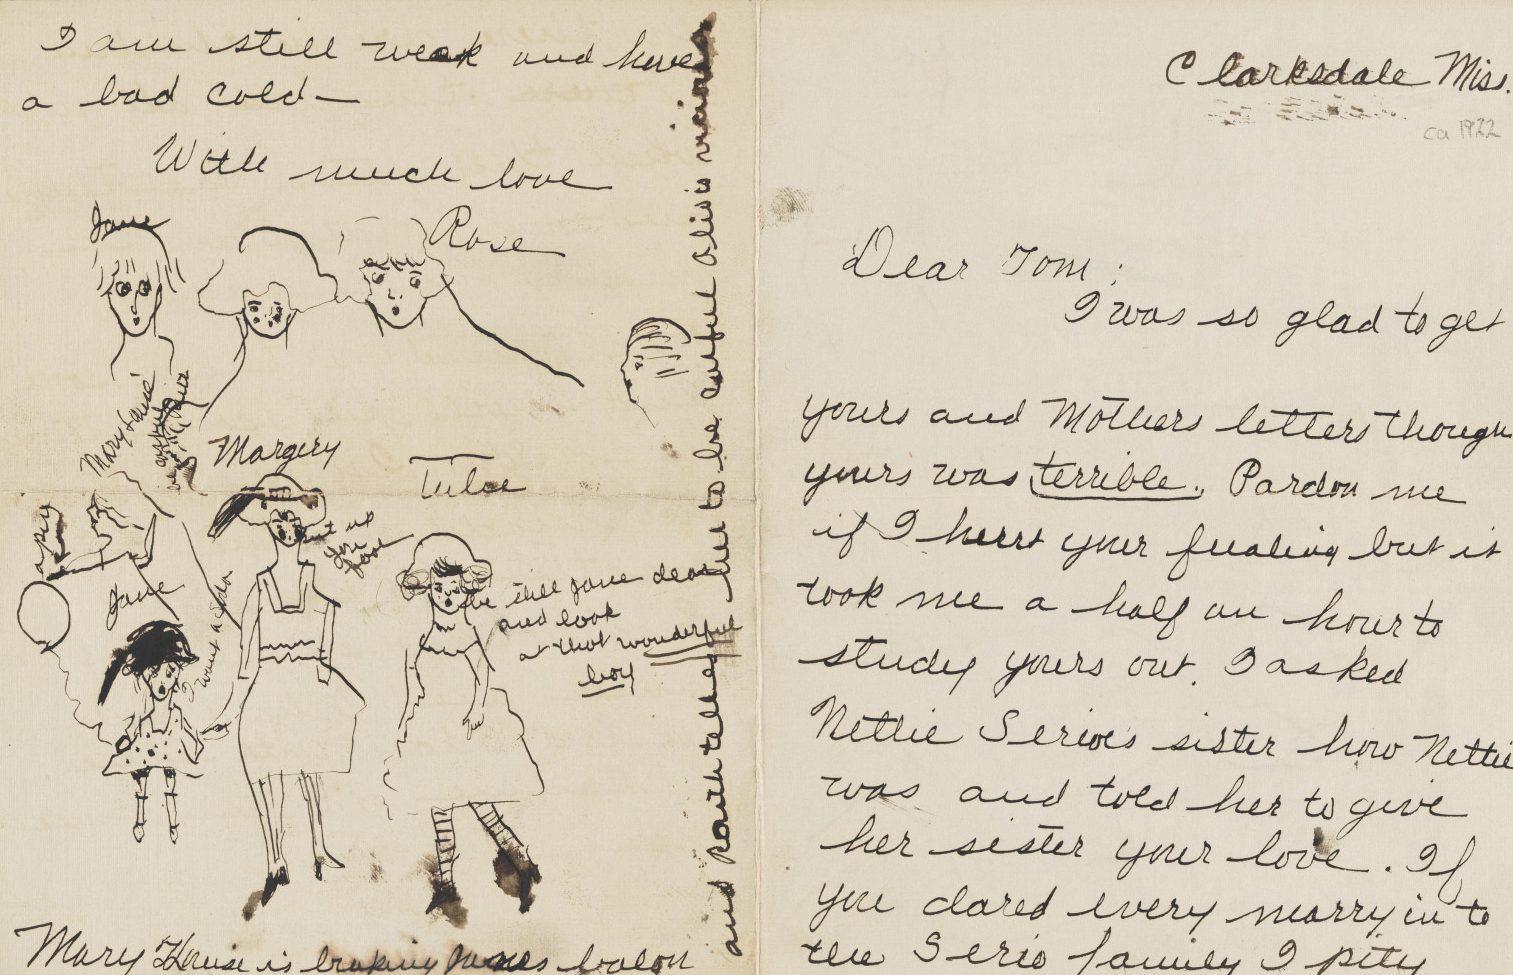 I am still weak and have
a bad cold—
With much love
Rose
Jane
Mary Louise
Margery
Tulae
shut up
you
fool
be still Jane dear
and look
at that wonderful
boy
Jane
I want a soda
Mary Louise is braking Janes baloon
and tells her to be carful as is vicious
Clarksdale Miss.
ca 1922
Dear Tom;
I was so glad to get
yours and Mothers letters though
yours was terrible. Pardon me
if I herrt your fealing but it
took me a half an hour to
study yours out. I asked
Nettie Serios sister how Nettie
was and told her to give
her sister your love. If
you dared every marry in to
the Serio family I pity